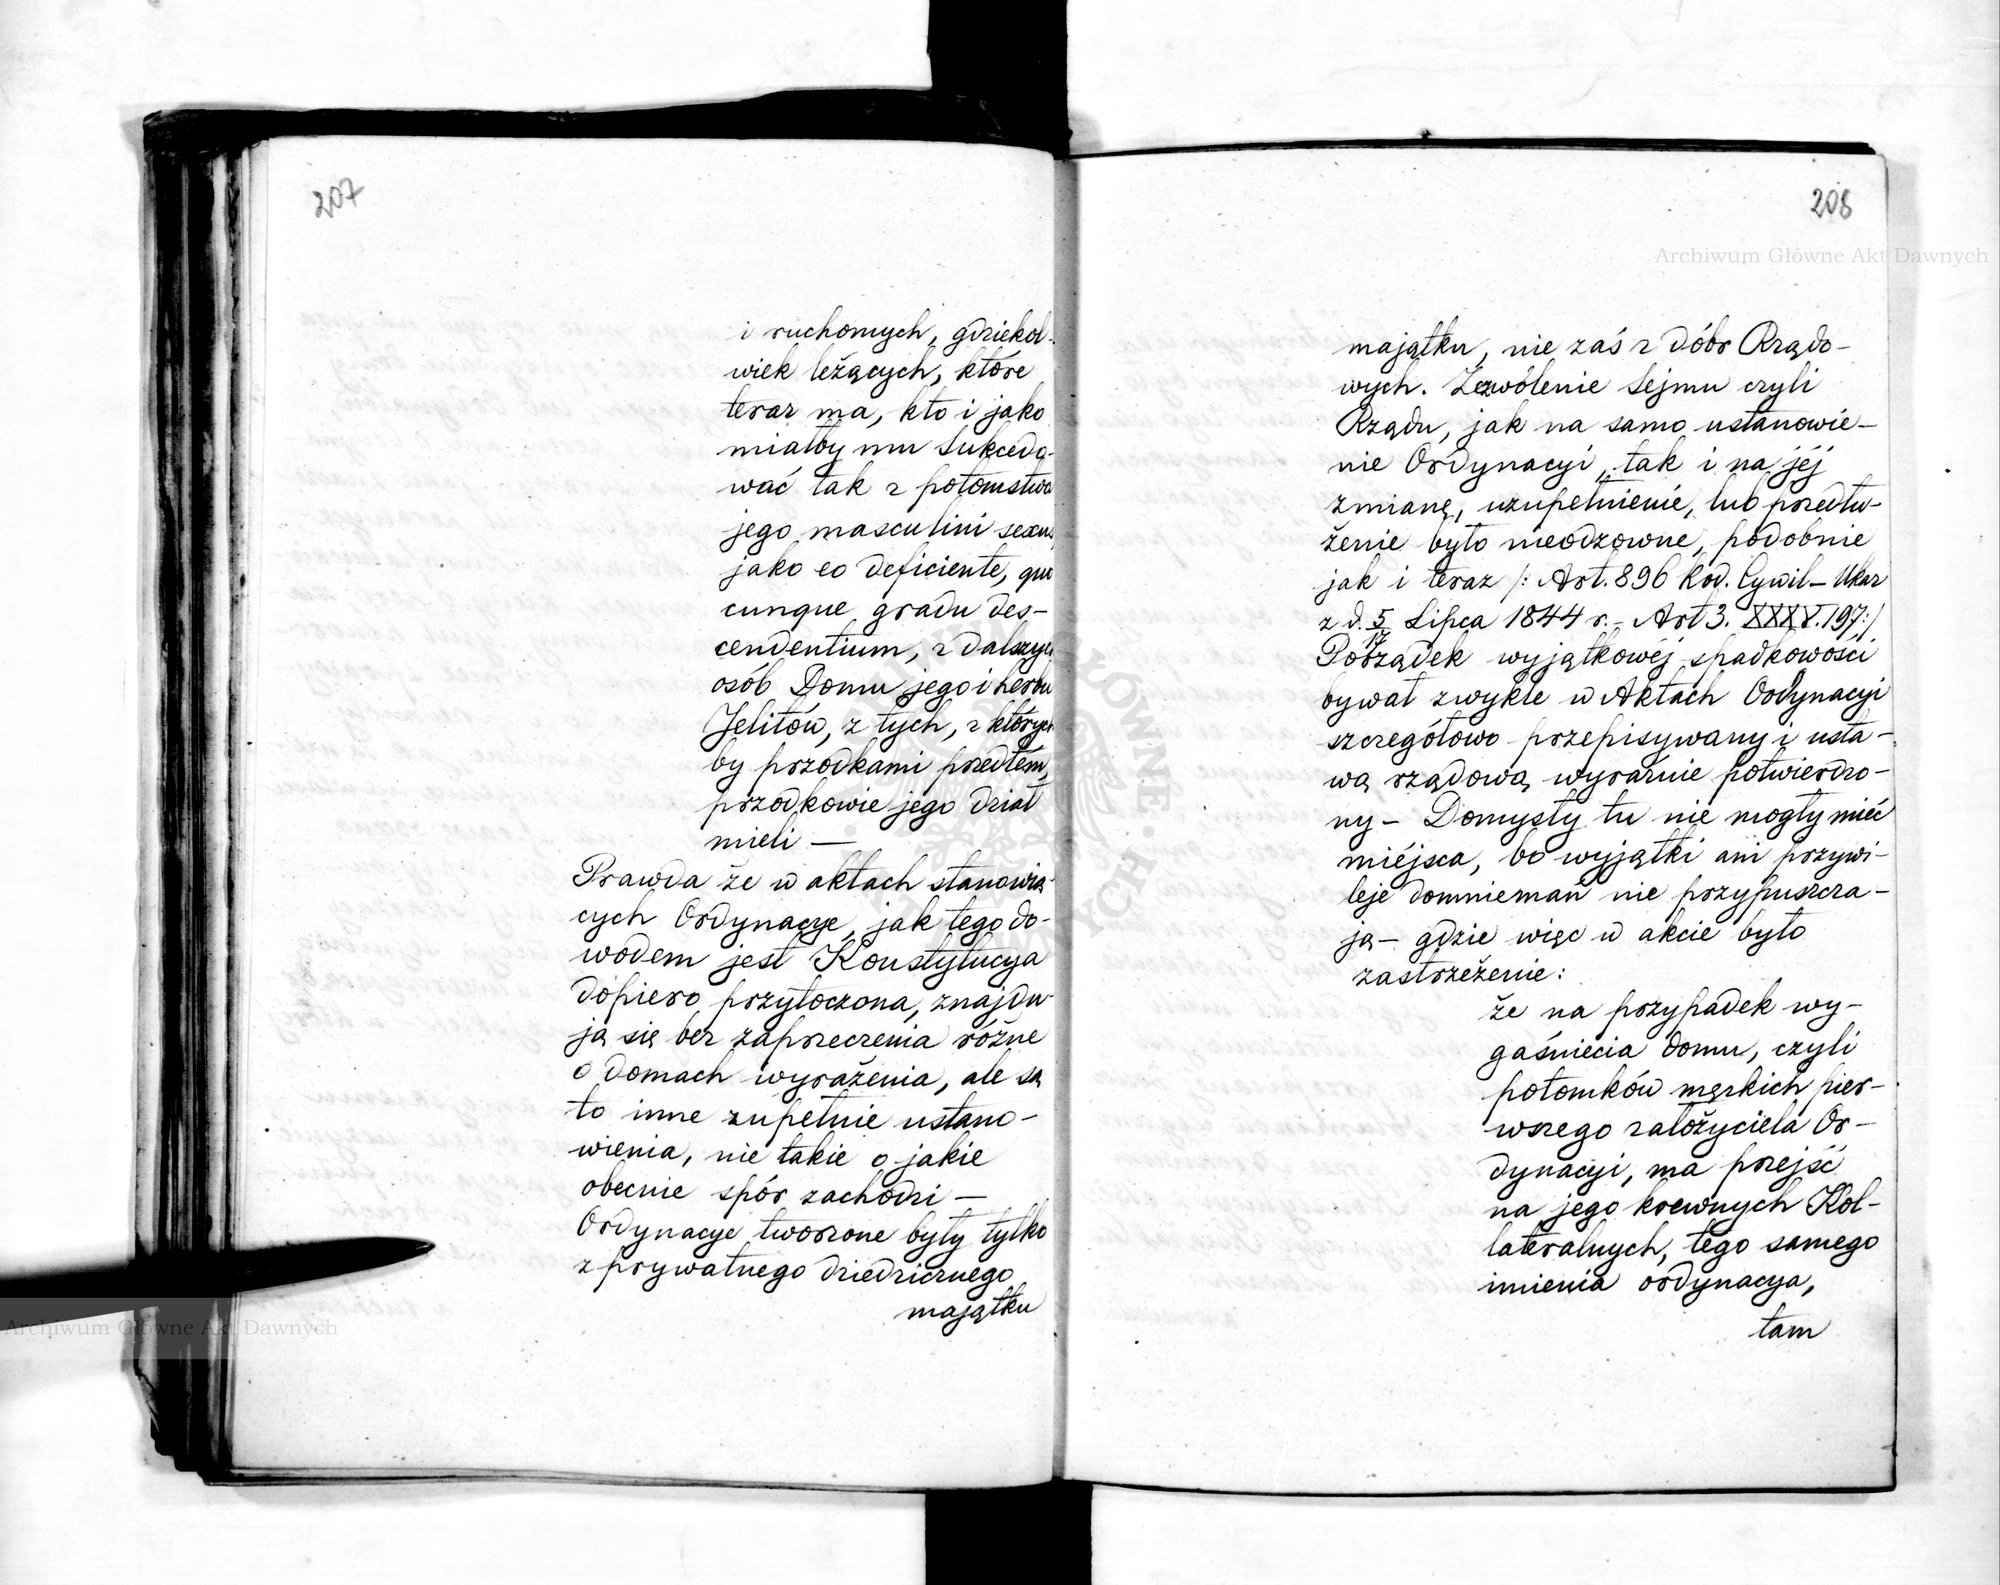 207
i ruchomych, gdziekol-
wiek leżących, które
teraz ma, kto i jako
miałby mu sukcedo-
wać tak z potomstwa
jego masculini sexus,
jako eo deficiente, quo
cunque gradu des-
cendentium, z dalszych
osób Domu jego i herbu
Jelitów, z tych, z których
by przodkami przedtém,
przodkowie jego dział
mieli —
Prawda że w aktach stanowią-
cych Ordynacye, jak tego do-
wodem jest Konstytucya
dopiero przytoczona, znajdu-
ją się bez zaprzeczenia różne
o domach wyrażenia, ale są
to inne zupełnie ustano-
wienia, nie takie o jakie
obecnie spór zachodzi —
Ordynacye tworzone były tylko
z prywatnego dziedzicznego
majątku
208
majątku, nie zaś z dóbr Rządo-
wych. Zezwólenie Sejmu czyli
Rządu, jak na samo ustanowie-
nie Ordynacyi, tak i na jéj
zmianę, uzupełnienie, lub przedłu-
żenie było nieodzowne, podobnie
jak i teraz /: Art. 896 Kod. Cywil – Ukaz
z d. 5/17 Lipca 1844 r. – Art 3. XXXV. 197:/
Porządek wyjątkowéj spadkowości
bywał zwykle w Aktach Ordynacyi
szczegółowo przepisywany i usta-
wą rządową wyraźnie potwierdzo-
ny – Domysły tu nie mogły mieć
miéjsca, bo wyjątki ani przywi-
leje domniemań nie przypuszcza-
ją – gdzie więc w akcie było
zastrzeżenie:
że na przypadek wy-
gaśnięcia domu, czyli
potomków męzkich pier-
wszego założyciela Or-
dynacyi, ma przejść
na jego krewnych Kol-
lateralnych, tego samego
imienia ordynacya,
tam
Archiwum Główne Akt Dawnych
Archiwum Główne Akt Dawnych